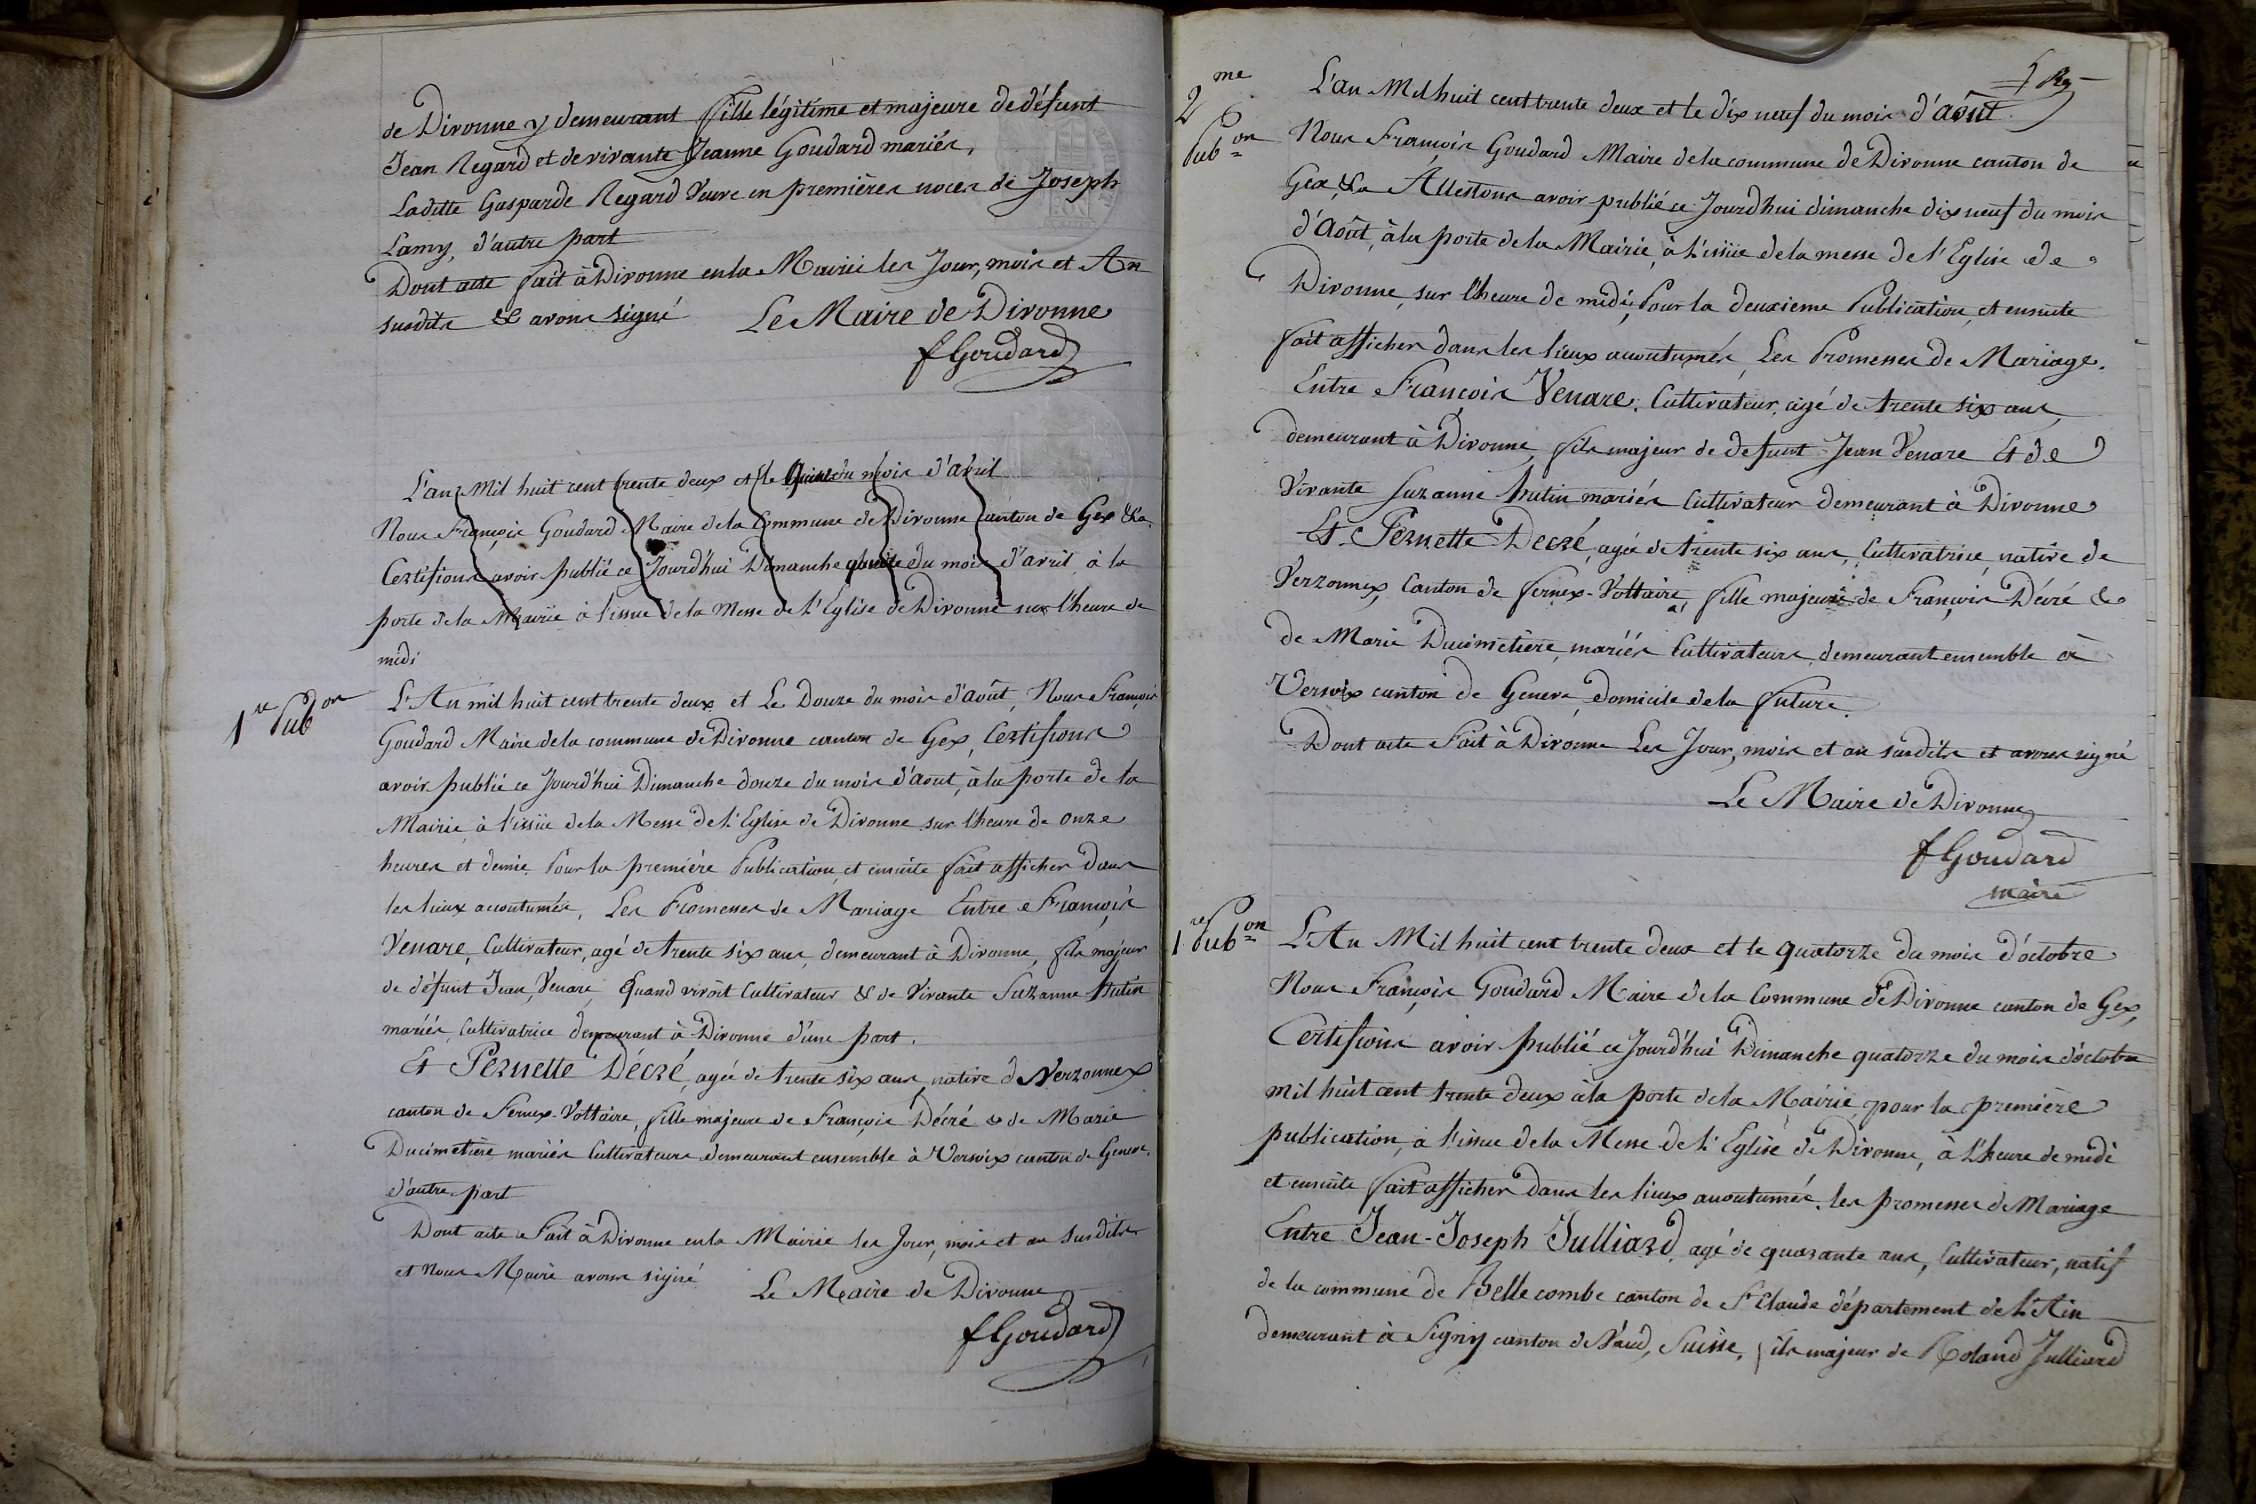 de Divonne y demeurant fille légitime et majeure de défunt
Jean Regard et de vivante Jeanne Goudard mariés,
Ladite Gasparde Regard Veuve en premières noces de Joseph
Lamy, d'autre part
Dont acte fait à Divonne en la Mairie les Jour, mois et An
susdits & avons signé Le Maire de Divonne
f Goudard
L'an Mil huit cent trente deux et le du mois d'avril
Nous François Goudard Maire de la Commune de Divonne canton de Gex &a.
Certifions avoir publié ce Jourd'hui Dimanche du mois d'avril à la
porte de la Mairie à l'issue de la Messe de l'Eglise de Divonne sur l'heure de
midi
1re Pubon
L'An mil huit cent trente deux et Le Douze du mois d'août, Nous François
Goudard Maire de la commune de Divonne canton de Gex, Certifions
avoir publié ce Jourd'hui Dimanche douze du mois d'Aout, à la porte de la
Mairie, à l'issüe de la Messe de l'Eglise de Divonne sur l'heure de onze
heures et demie Pour la première Publication, et ensuite fait afficher dans
les lieux accoutumés, Les Promesses de Mariage Entre François
Venare, Cultivateur, agé de trente six ans, demeurant à Divonne, fils majeur
de défunt Jean, Venare, Quand vivoit Cultivateur & de Vivante Suzanne Hutin
mariés, Cultivatrice demeurant à Divonne d'une part.
Et Pernette Décré, agée de trente six ans, native de Verzonnex
canton de Fernex-Voltaire, fille majeure de François Décré & de Marie
Ducimetière mariés Cultivateurs demeurant ensemble à Versoix canton de Geneve.
d'autre part
Dont acte Fait à Divonne en la Mairie les Jour, mois et an Susdits
et Nous Maire avons signé Le Maire de Divonne
f Goudard
2me Pubon
L'an Mil huit cent trente deux et le dix neuf du mois d'Août
Nous François Goudard Maire de la commune de Divonne canton de
Gex, &a Attestons avoir publié ce Jourd'hui dimanche dix neuf du mois
d'Août, à la porte de la Mairie, à l'issüe de la messe de l'Eglise de
Divonne, sur l'heure de midi, Pour la deuxieme Publication, et ensuite
fait afficher dans les lieux accoutumés, Les Promesses de Mariage.
Entre François Venare. Cultivateur, agé de trente six ans,
demeurant à Divonne, fils majeur de defunt Jean Venare Et de
Vivante Suzanne Hutin mariés Cultivateur demeurant à Divonne
Et Pernette Decré, agée de trente six ans, Cultivatrice, native de
Verzonnex, Canton de Fernex-Voltaire, fille majeure de François Décré &
de Marie Ducimetière, mariés Cultivateurs, demeurant ensemble à
Versoix canton de Geneve, domicile de la future.
Dont acte Fait à Divonne Les Jour, mois et an susdits et avons signé
Le Maire de Divonne
f Goudard
maire
1re Pubon
L'An Mil huit cent trente deux et le quatorze du mois d'octobre
Nous François Goudard Maire de la Commune de Divonne canton de Gex,
Certifions avoir publié ce Jourd'hui Dimanche quatorze du mois d'octobre
mil huit cent trente deux à la porte de la Mairie, pour la première
publication, à l'issue de la Messe de l'Eglise de Divonne, à l'heure de midi
et ensuite fait afficher dans les lieux accoutumés, les promesses de Mariage
Entre Jean-Joseph Julliard, agé de quarante ans, Cultivateur, natif
de la commune de Bellecombe canton de St Claude département de l'Ain
demeurant à Signy canton de Vaud, Suisse, fils majeur de Roland Julliard